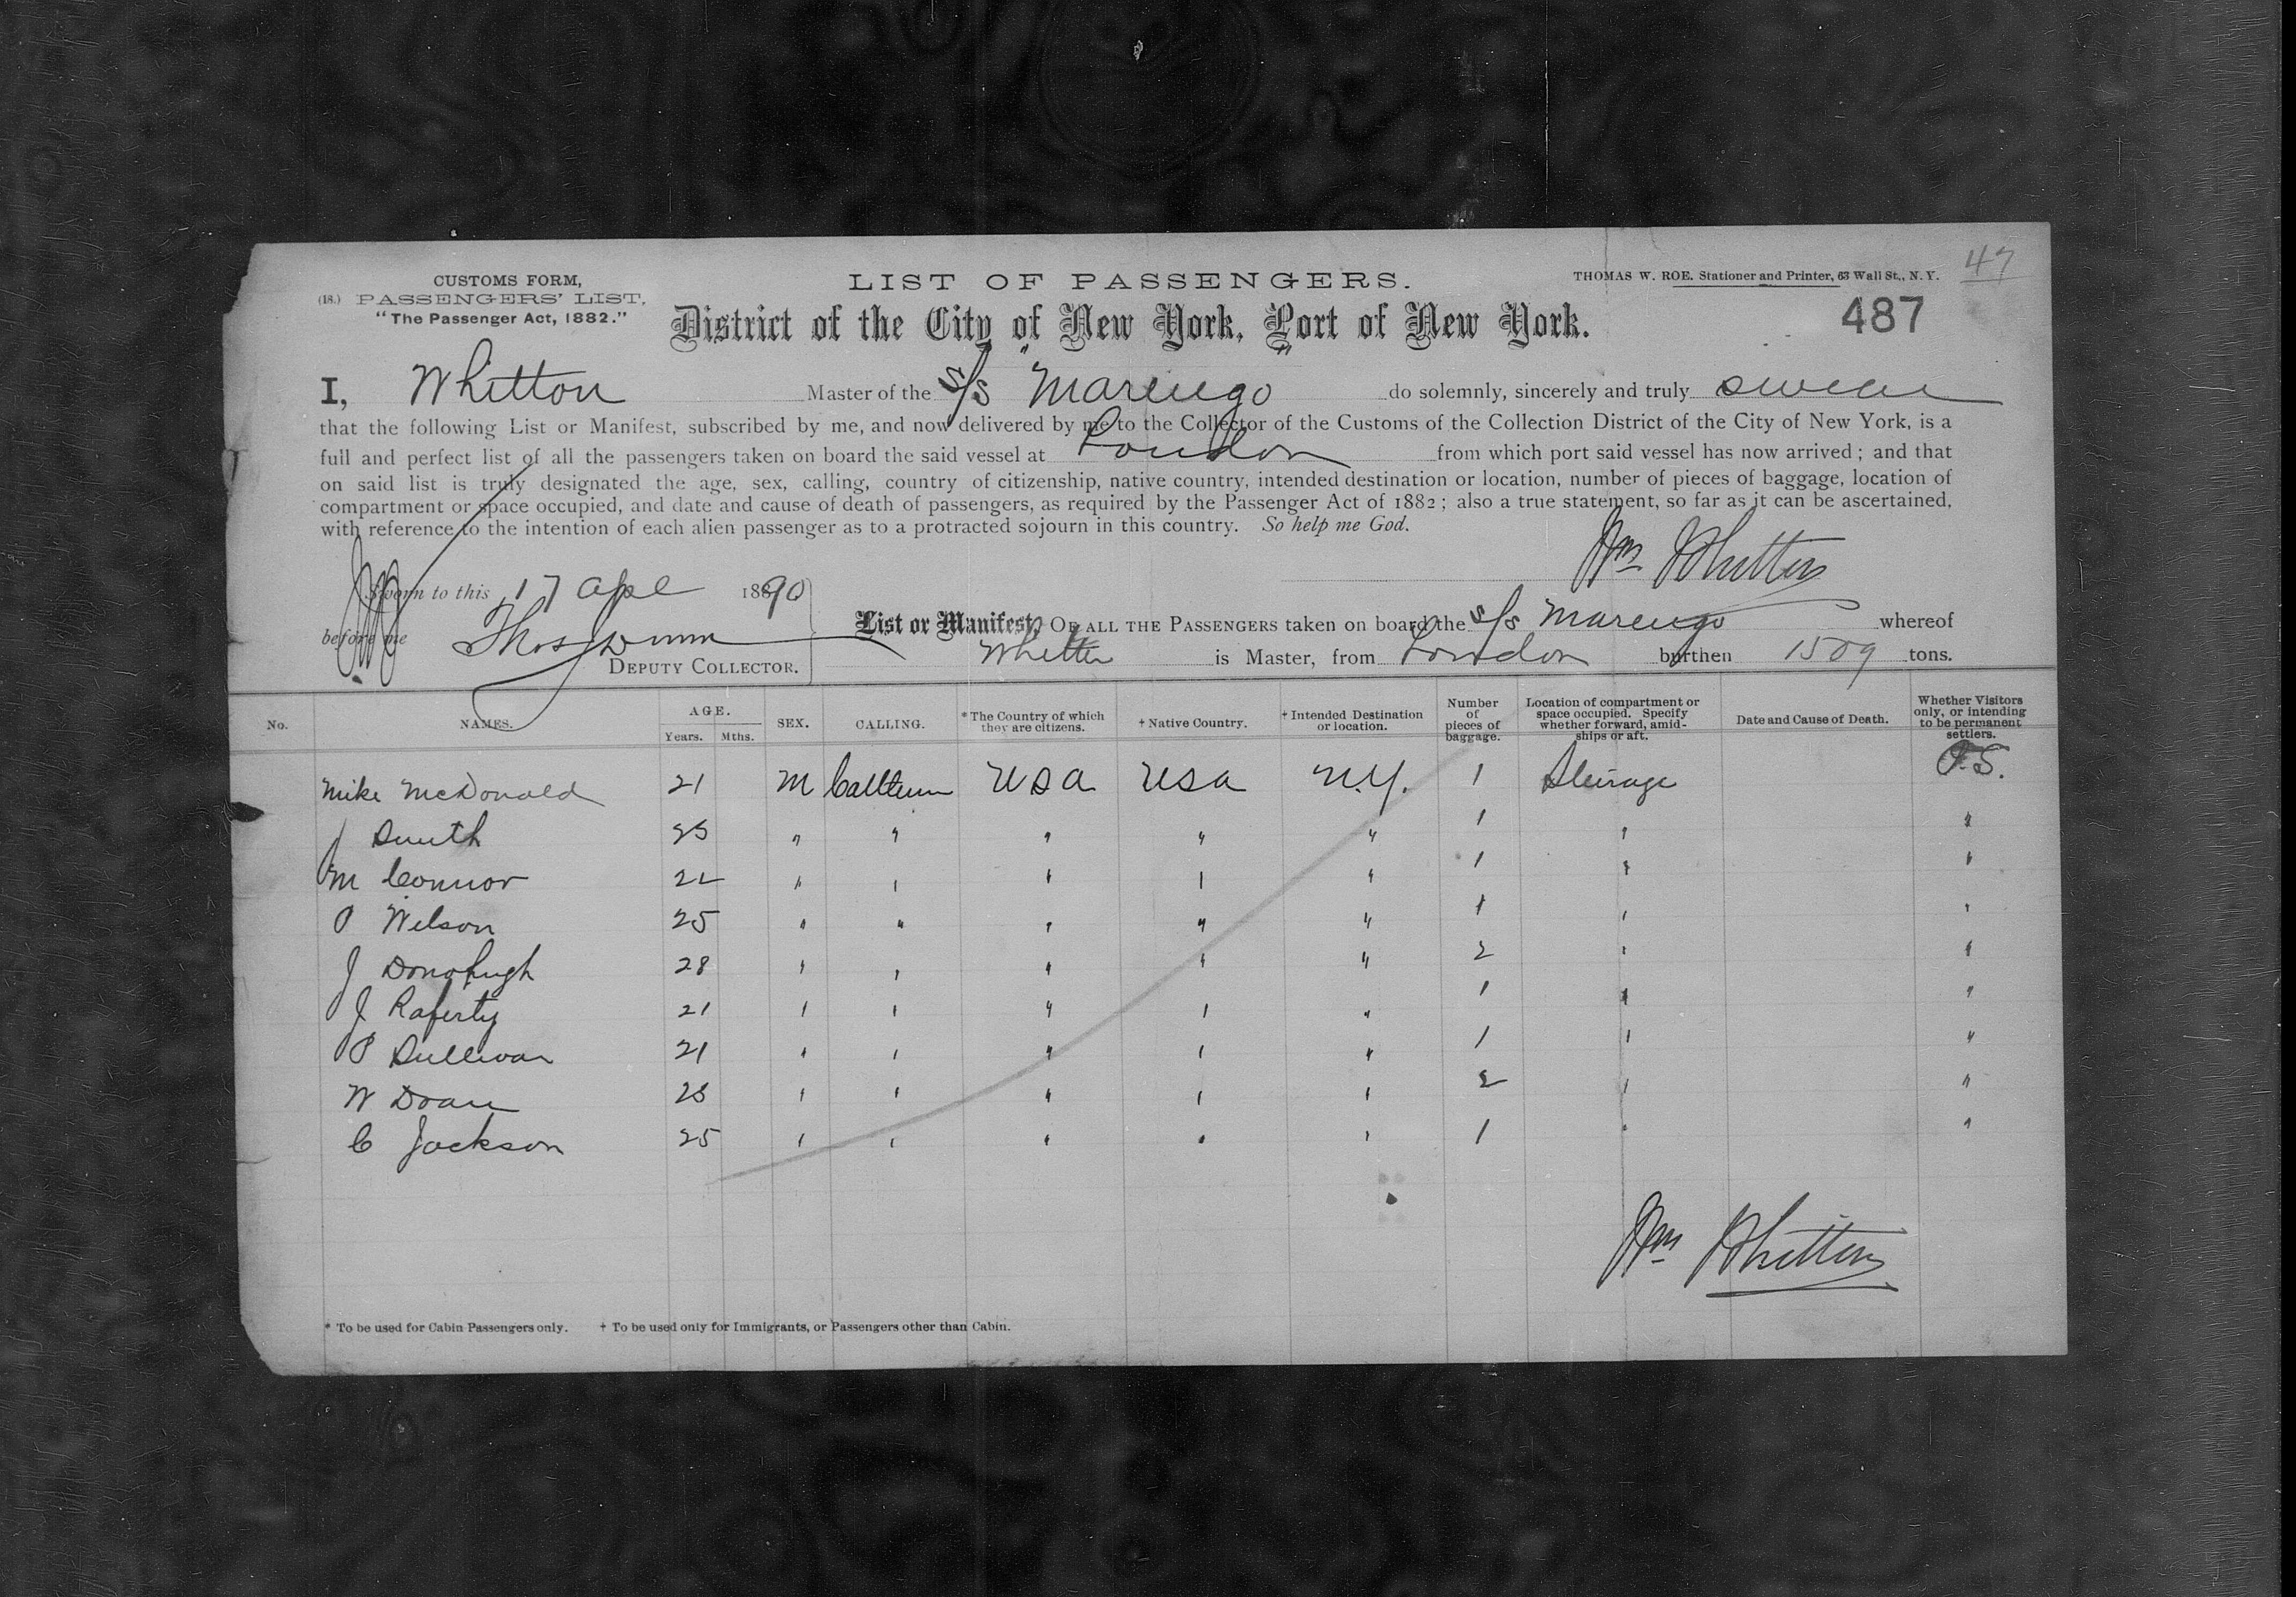 47
CUSTOMS FORM, LIST OF PASSENGERS. THOMAS W. ROE. Stationer and Printer, 63 Wall St., N. Y.
(18.) PASSENGERS' LIST,
"The Passenger Act, 1882."
District of the City of New York, Port of New York. 487
I, Whitton Master of the s/s "Marengo" do solemnly, sincerely and truly swear
that the following List or Manifest, subscribed by me, and now delivered by me to the Collector of the Customs of the Collection District of the City of New York, is a
full and perfect list of all the passengers taken on board the said vessel at London from which port said vessel has now arrived; and that
on said list is truly designated the age, sex, calling, country of citizenship, native country, intended destination or location, number of pieces of baggage, location of
compartment or space occupied, and date and cause of death of passengers, as required by the Passenger Act of 1882; also a true statement, so far as it can be ascertained,
with reference to the intention of each alien passenger as to a protracted sojourn in this country. So help me God.
Wm Whitton
Sworn to this 17 Apl 1890
before me Thos Dunn
DEPUTY COLLECTOR.
List or Manifest, OF ALL THE PASSENGERS taken on board the s/s Marengo whereof
Whitton is Master, from London burthen 1509 tons.
No. NAMES. AGE. Years. Mths. SEX. CALLING. *The Country of which they are citizens. † Native Country. † Intended Destination or location. Number of pieces of baggage. Location of compartment or space occupied. Specify whether forward, amidships or aft. Date and Cause of Death. Whether Visitors only, or intending to be permanent settlers.
Mike McDonald 21 M Cattleman USA USA N.Y. 1 Steerage P.S.
J Smith 25 " " " " " 1 " "
M Connor 22 " " " " " 1 " "
P Wilson 25 " " " " " 1 " "
J Donohugh 28 " " " " " 2 " "
J Raferty 21 " " " " " 1 " "
P Sullivan 21 " " " " " 1 " "
W Doan " " " " " 2 " "
C Jackson 25 " " " " " 1 " "
Wm Whitton
* To be used for Cabin Passengers only. † To be used only for Immigrants, or Passengers other than Cabin.